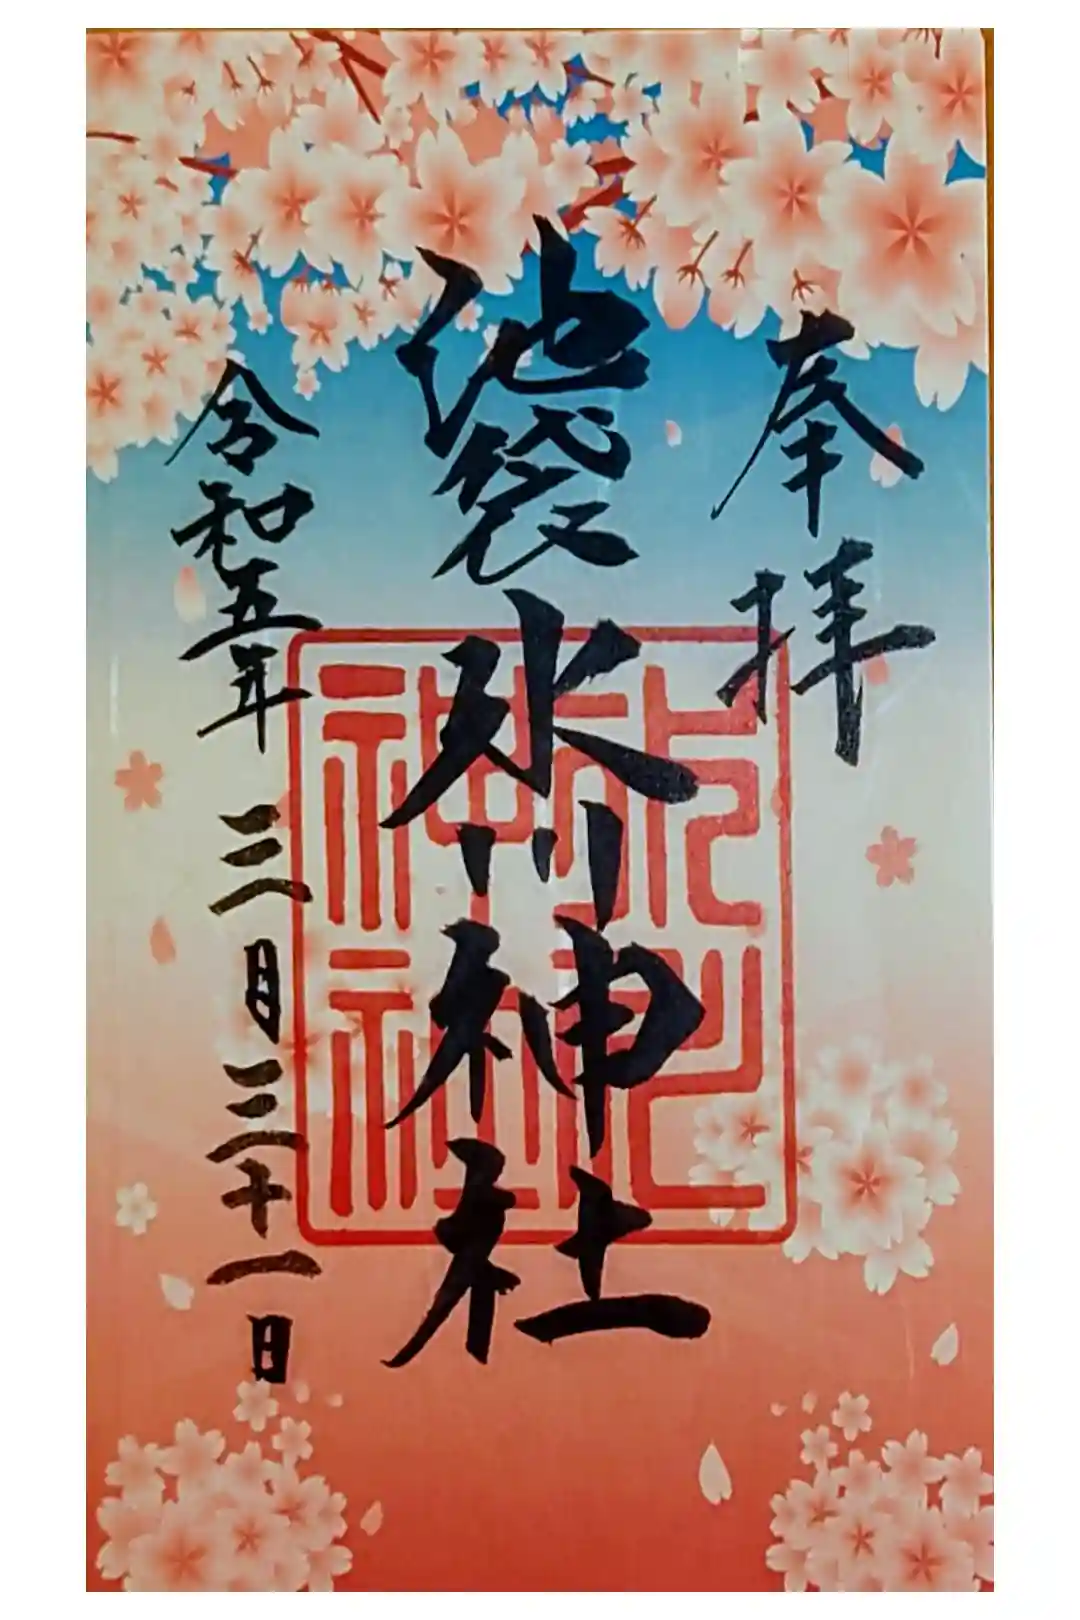 奉拝
池袋氷川神社
氷川
神社
令和五年三月三十一日